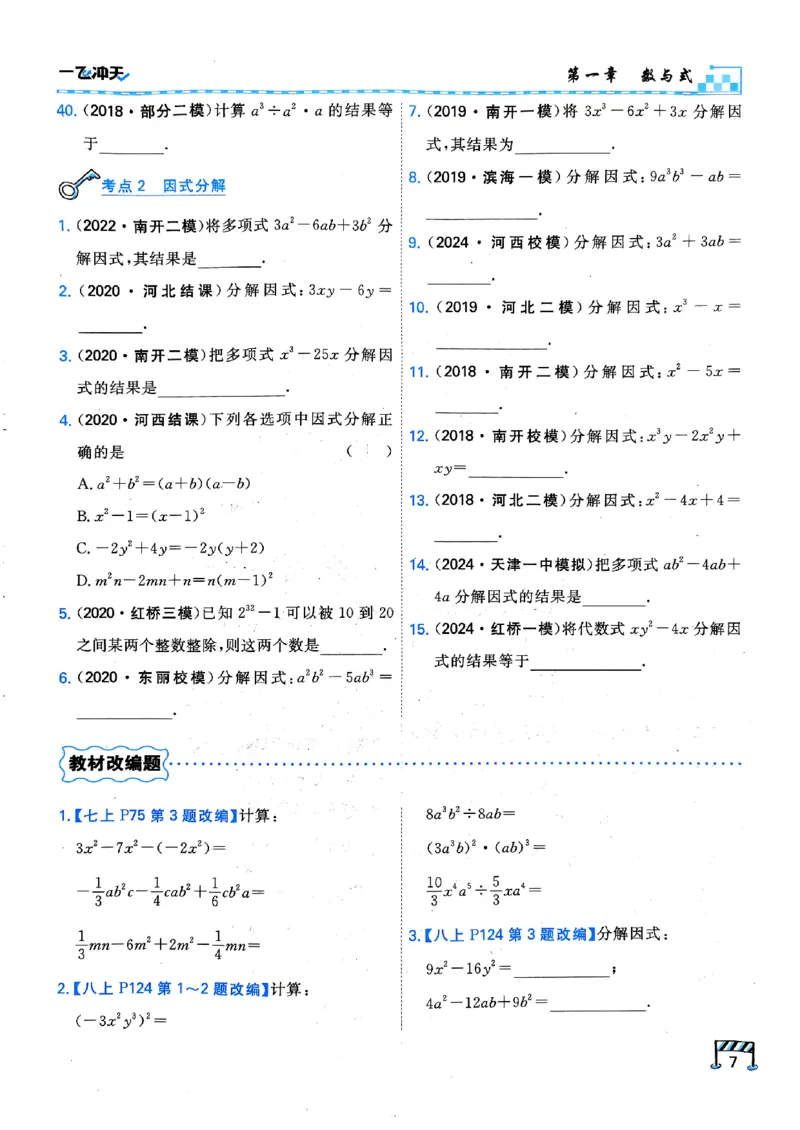 一飞冲天
第一章 数与式
40. (2018·部分二模)计算 a³÷a²·a 的结果等
于______.
考点2 因式分解
1. (2022·南开二模)将多项式 3a²-6ab+3b² 分
解因式,其结果是______.
2. (2020·河北结课)分解因式:3xy-6y=
______.
3. (2020·南开二模)把多项式 x³-25x 分解因
式的结果是______.
4. (2020·河西结课)下列各选项中因式分解正
确的是 ( )
A. a²+b²=(a+b)(a-b)
B. x²-1=(x-1)²
C. -2y²+4y=-2y(y+2)
D. m²n-2mn+n=n(m-1)²
5. (2020·红桥三模)已知 2³²-1 可以被 10 到 20
之间某两个整数整除,则这两个数是______.
6. (2020·东丽校模)分解因式:a²b²-5ab³=
______.
7. (2019·南开一模)将 3x³-6x²+3x 分解因
式,其结果为______.
8. (2019·滨海一模)分解因式:9a³b³-ab=
______.
9. (2024·河西校模)分解因式:3a²+3ab=
______.
10. (2019·河北二模)分解因式:x³-x=
______.
11. (2018·南开二模)分解因式:x²-5x=
______.
12. (2018·南开校模)分解因式:x³y-2x²y+
xy=______.
13. (2018·河北二模)分解因式:x²-4x+4=
______.
14. (2024·天津一中模拟)把多项式 ab²-4ab+
4a 分解因式的结果是______.
15. (2024·红桥一模)将代数式 xy²-4x 分解因
式的结果等于______.
教材改编题
1.【七上 P75 第 3 题改编】计算:
3x²-7x²-(-2x²)=
-1/3ab²c-1/4cab²+1/6cb²a=
1/3mn-6m²+2m²-1/4mn=
2.【八上 P124 第 1~2 题改编】计算:
(-3x²y³)²=
8a³b²÷8ab=
(3a³b)²·(ab)³=
10/3x⁴a⁵÷5/3xa⁴=
3.【八上 P124 第 3 题改编】分解因式:
9x²-16y²=______;
4a²-12ab+9b²=______.
7